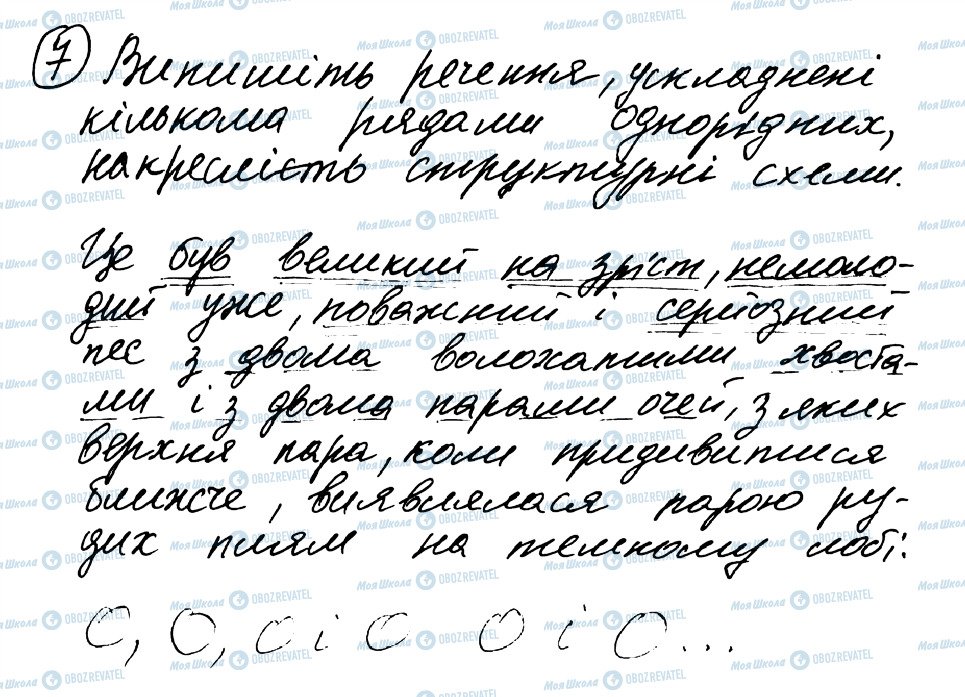 7 Випишіть речення, ускладнені
кількома рядами однорідних,
накресліть структурні схеми.
Це був великий на зріст, немоло-
дий уже, поважний і серйозний
пес з двома волохатими хвоста-
ми і з двома парами очей, з яких
верхня пара, коли придивитися
ближче, виявлялася парою ру-
дих плям на темному лобі.
О, О, О і О О і О...